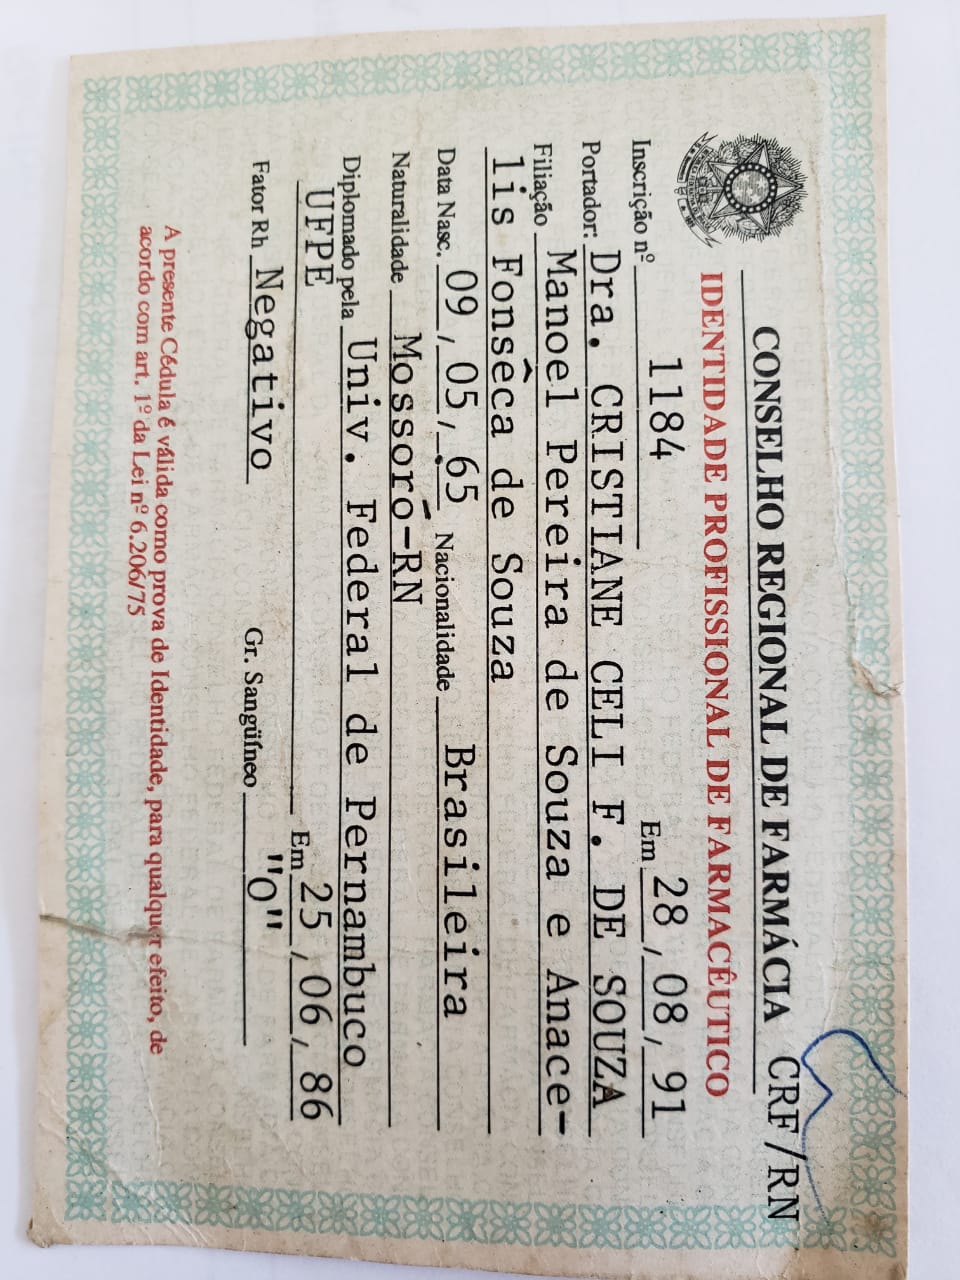 CONSELHO REGIONAL DE FARMÁCIA CRF/RN
IDENTIDADE PROFISSIONAL DE FARMACÊUTICO
Inscrição nº 1184 Em 28,08,91
Portador: Dra. CRISTIANE CELI F. DE SOUZA
Filiação Manoel Pereira de Souza e Anace-
lis Fonsêca de Souza
Data Nasc. 09,05,65 Nacionalidade Brasileira
Naturalidade Mossoró-RN
Diplomado pela Univ. Federal de Pernambuco
UFPE Em 25,06,86
Fator Rh Negativo Gr. Sangüíneo "O"
A presente Cédula é válida como prova de Identidade, para qualquer efeito, de
acordo com art. 1º da Lei nº 6.206/75